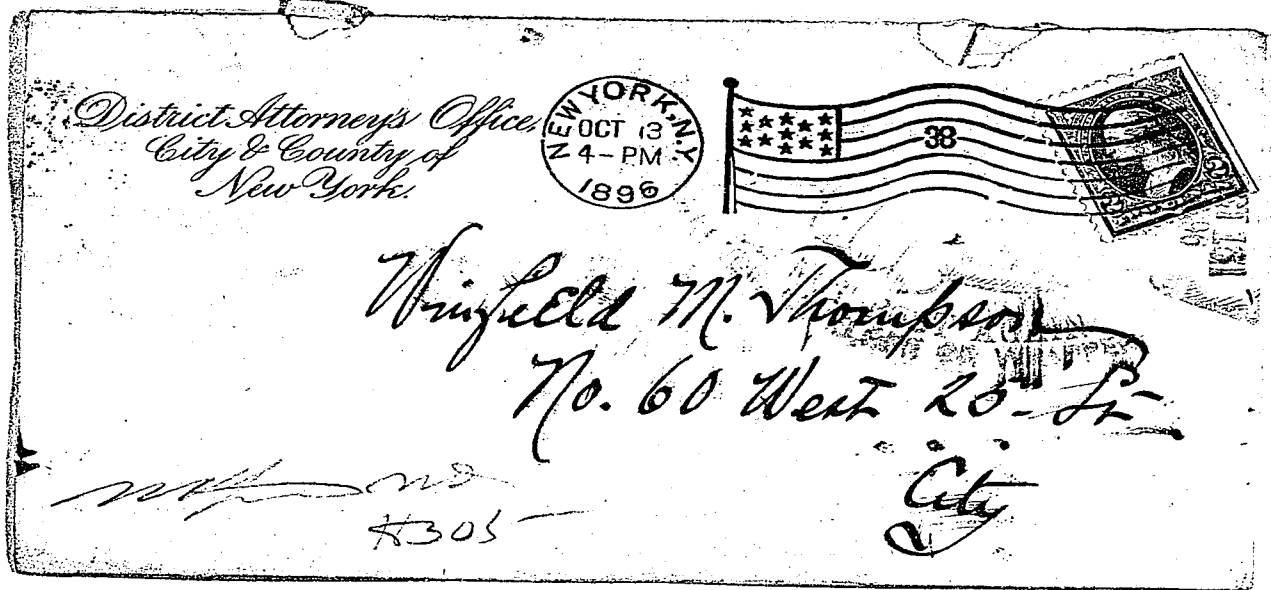 District Attorney's Office,
City & County of
New York.
NEW YORK, N.Y.
OCT 13
4-PM
1896
38
2
2
Winfield M. Thompson
No. 60 West 25 - St -
City
#305